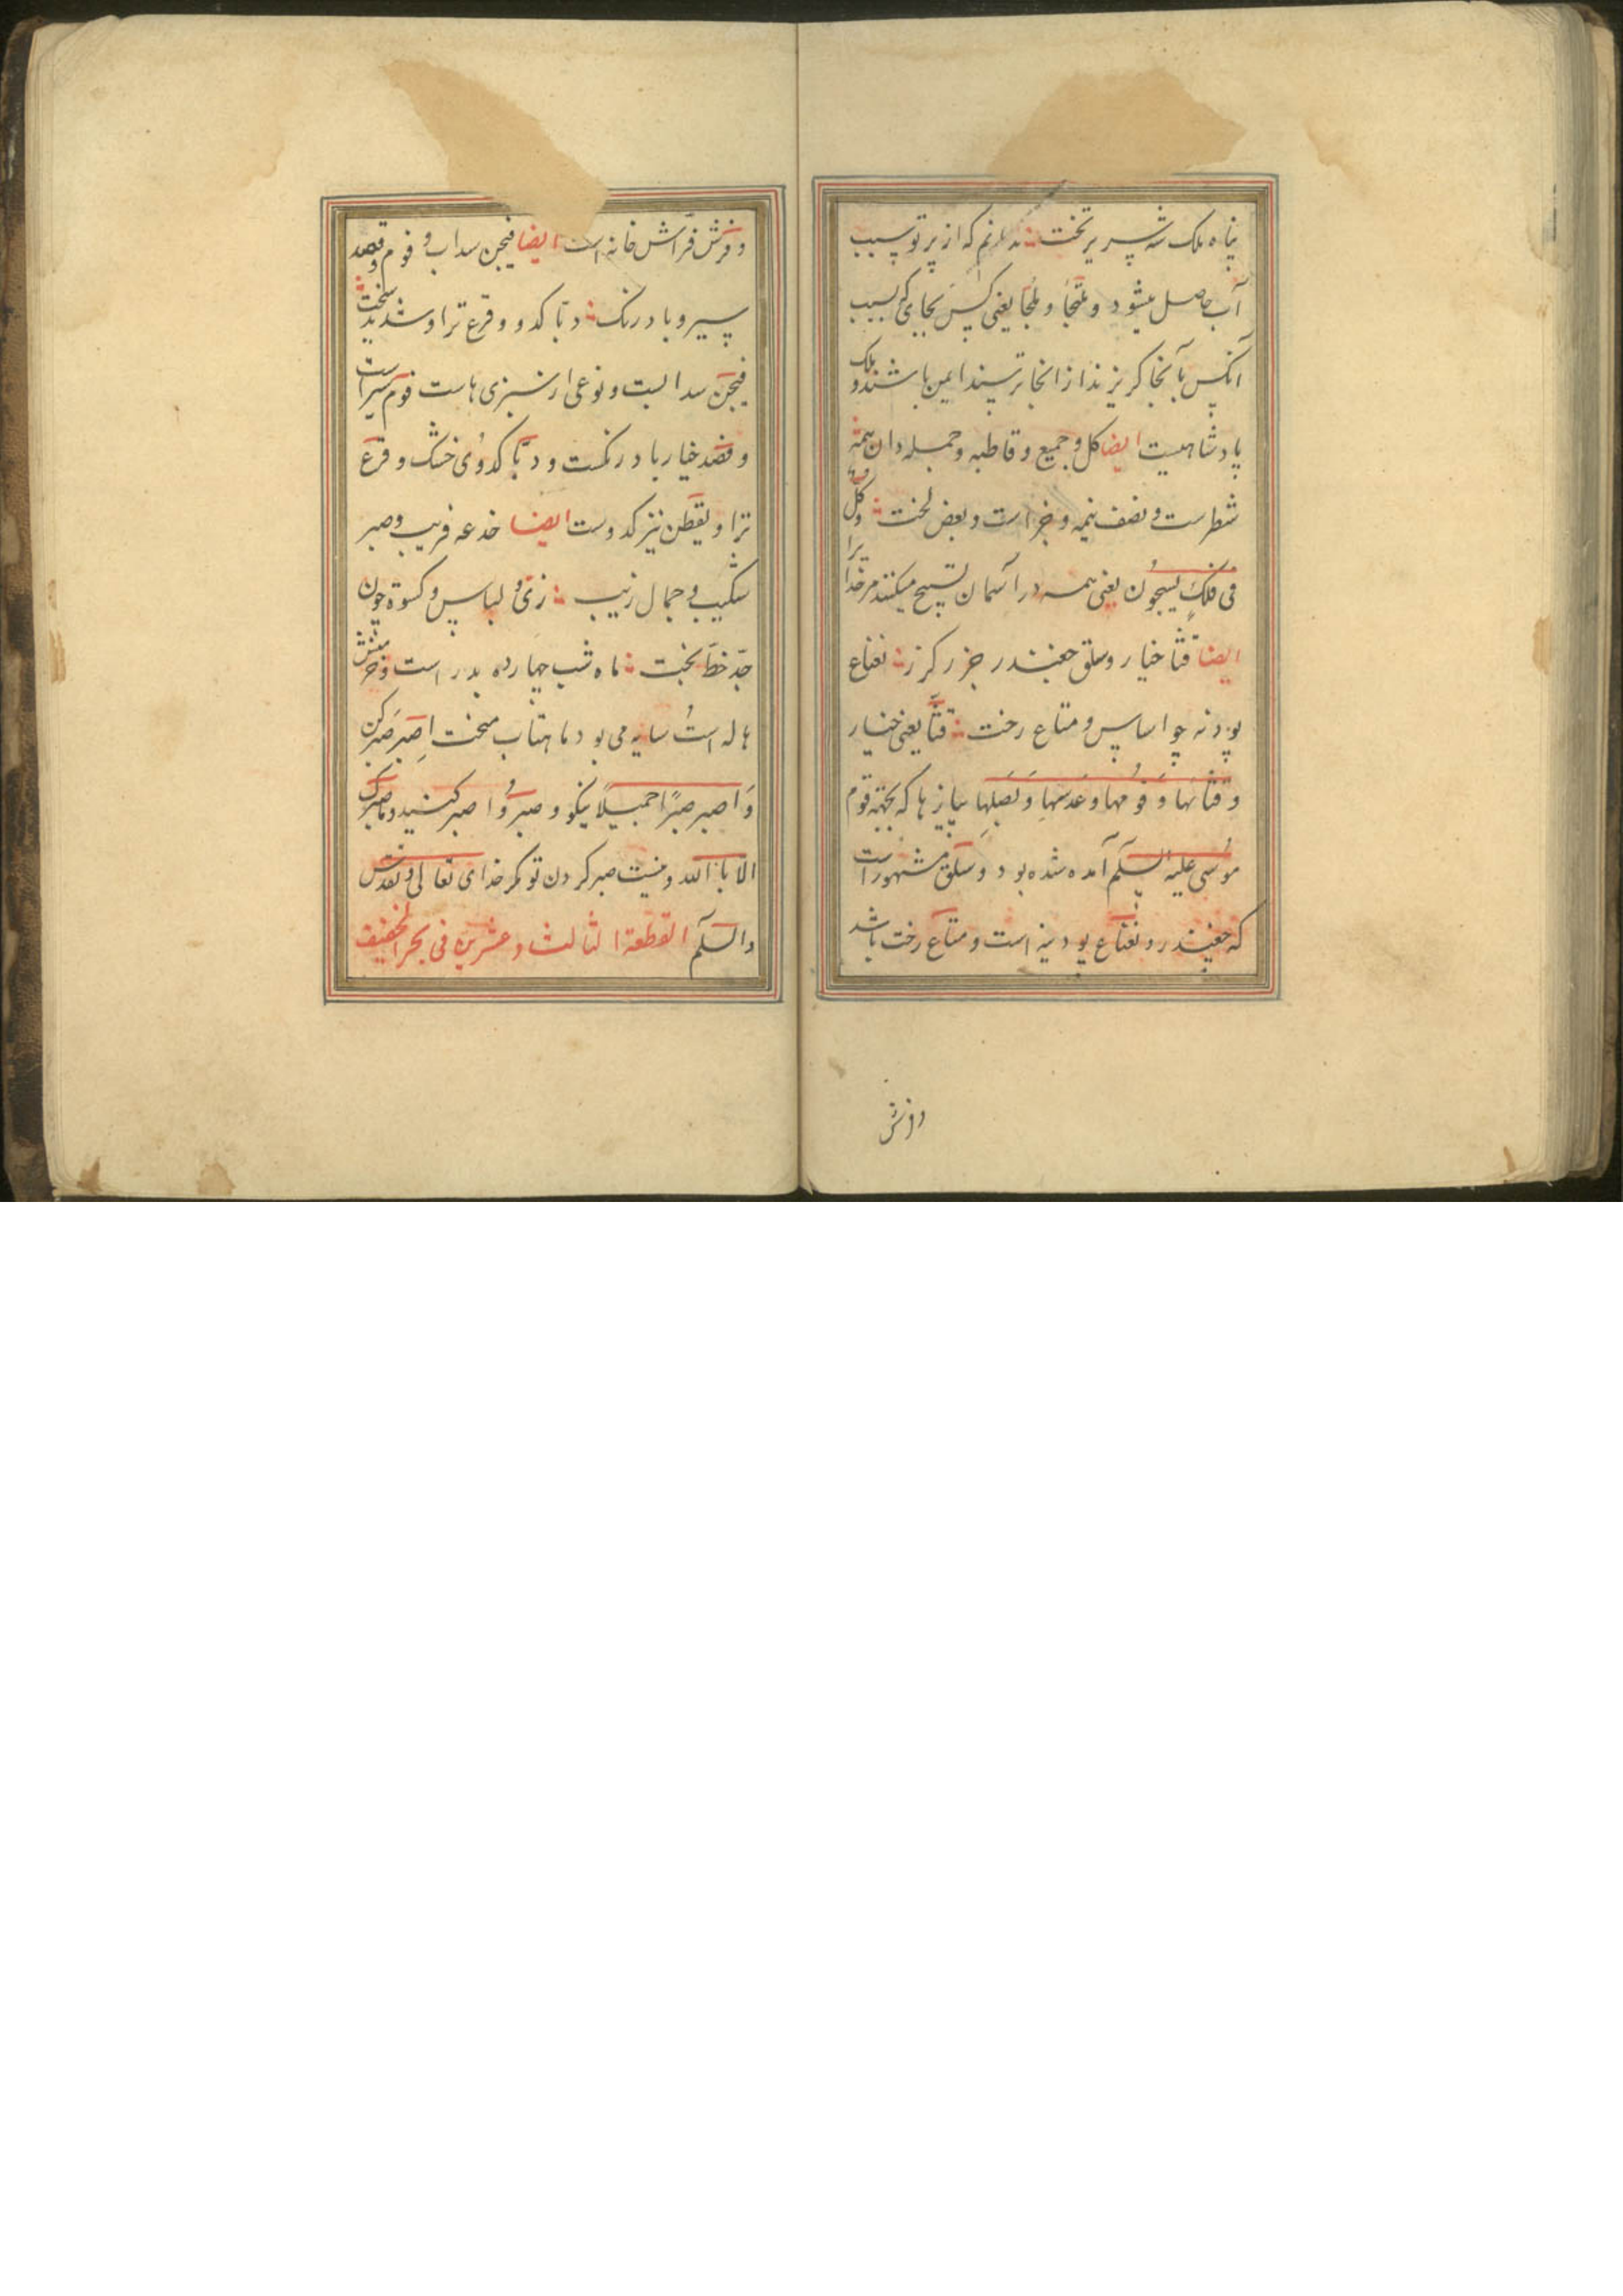 پناه ملک شه سریر تخت ؞ که از پرتو سبب
آب حاصل میشود و ملتجا و ملجا یعنی کس بجای که بسبب
آنکس بآنجا کریزند از انجا ترسند ایمن باشند و ملک
پادشاهیست ایضا کل و جمیع و قاطبه و جمله دان همه
شطرست و نصف نیمه و جزء است و بعض لخت ؞ وکل
فی فلک یسبحون یعنی همه در آسمان تسبیح میکنند مر خدا یرا
ایضا قثا خیار و سلق چغندر جزر کزر ؞ نعناع
پودنه چو اساس و متاع رخت ؞ قثا یعنی خیار
و قثائها و فومها و عدسها و بصلها پیازها که بجهة قوم
موسی علیه السلام آمده شده بود و سلق مشهور است
که چغندر و نعناع پودینه است و متاع رخت باشد
و فرش
و فرش فراش خانه است ایضا فیجن سداب و فوم
سیر و بادرنک ؞ دبا کدو و قرع تر او شدید سخت ؞
فیجن سدابست و نوعی از سبزی هاست فوم سیر است
و خیار بادرنکست و دبا کدوی خشک و قرع
تر او یقطن نیز کدوست ایضا خدعه فریب و صبر
شکیب و جمال زیب ؞ زی و لباس و کسوة چون
جد حظ بخت ؞ ماه شب چهارده بدر است و خرمنش
هاله است سایه می بود ماهتاب اصبر صبر کن
واصبر صبرا جمیلا نیکو و صبروا صبر کنید وما صبرک
الا بالله و نیست صبر کردن تو مکر خدای تعالی و تقدس
والسلام القطعة الثالث وعشرین فی بحر الخفیف